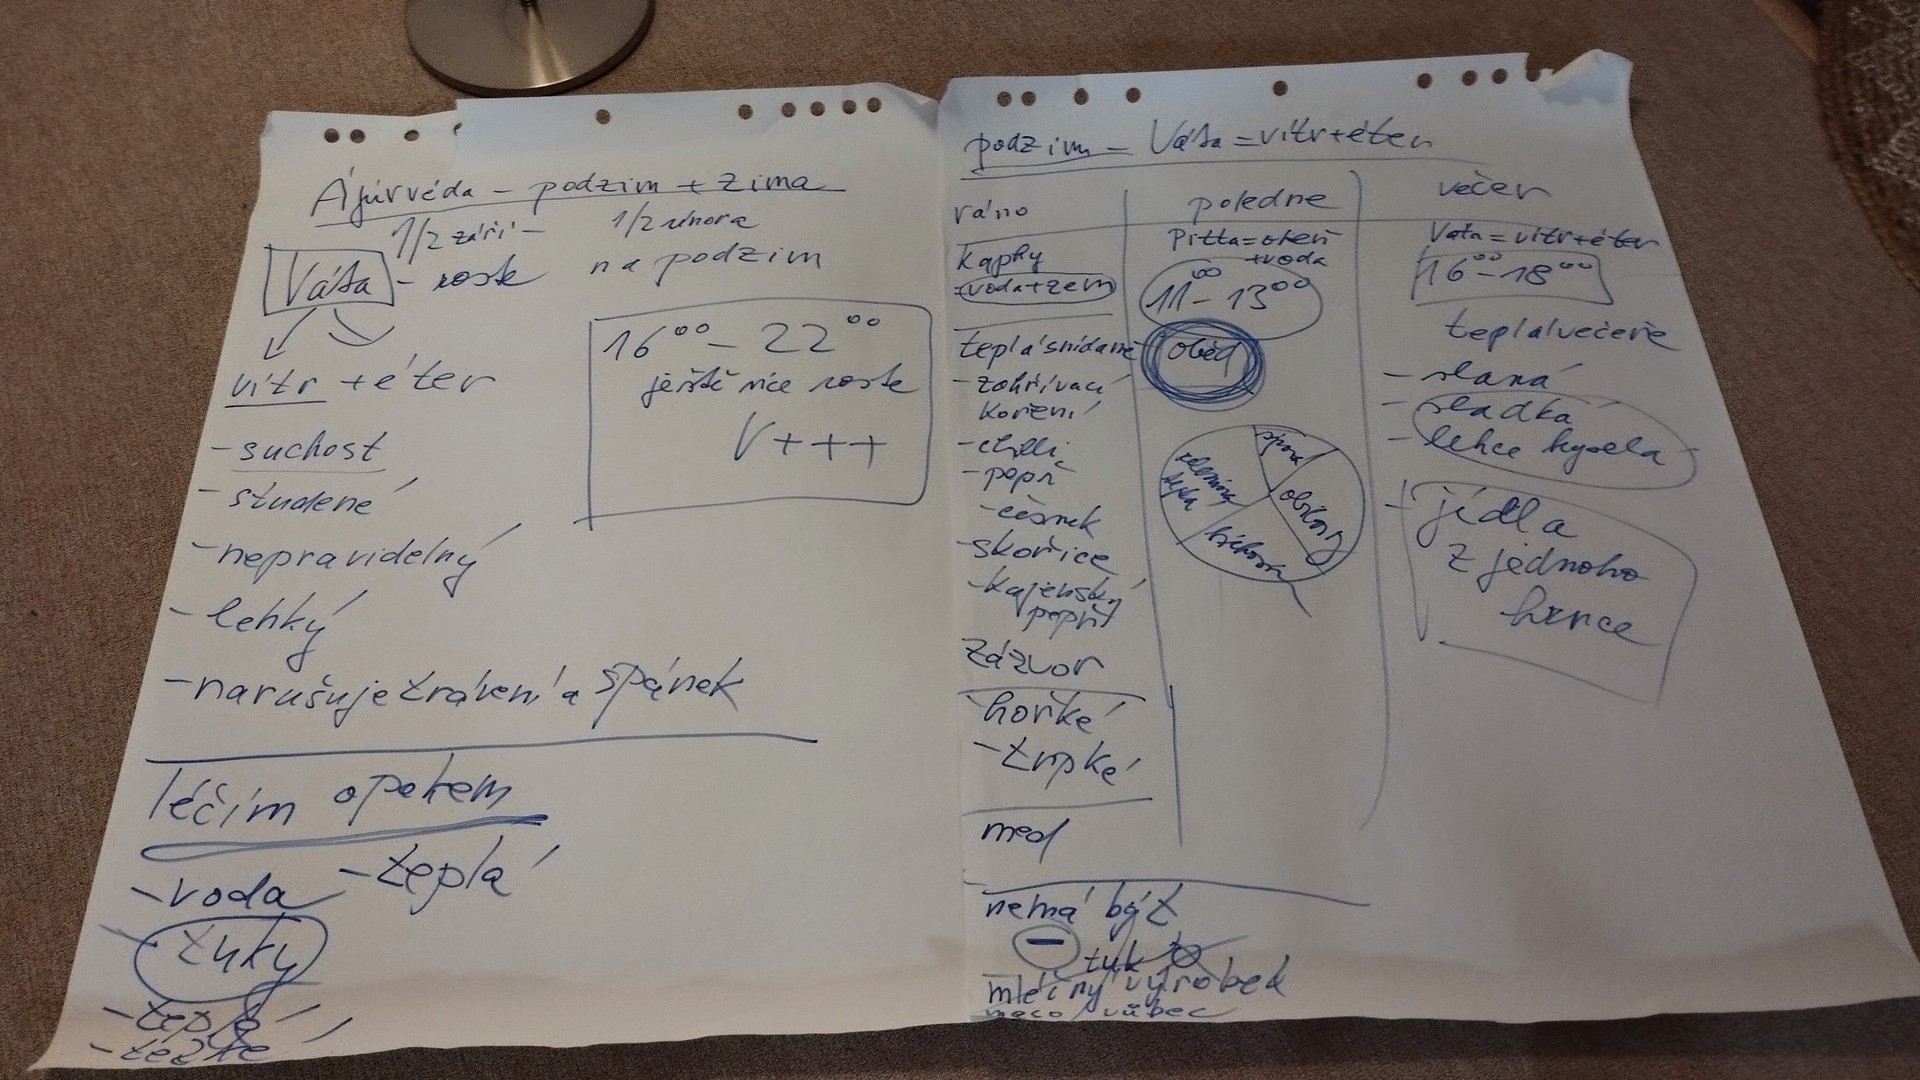 Ájúrvéda – podzim + zima
1/2 září – 1/2 února
Váta – roste na podzim
vítr + éter
- suchost
- studené
- nepravidelný
- lehký
- narušuje trávení a spánek
16⁰⁰ – 22⁰⁰
ještě více roste
V+++
léčím opakem
- voda - teplá
- tuky
- teplé
- těžké
podzim = Váta = vítr + éter
ráno
kaphy
= voda + zem
teplá snídaně
- zahřívací
koření
- chilli
- pepř
- česnek
- skořice
- kajenský
pepř
zázvor
hořké
- trpké
med
nemá být
- tuk
mléčný výrobek
maso vůbec
poledne
Pitta = oheň
+ voda
11⁰⁰ – 13⁰⁰
oběd
zelenina
teplá
obiloviny
večer
Vata = vítr + éter
16⁰⁰ – 18⁰⁰
teplá večeře
- slaná
- sladká
- lehce kyselá
- jídla
z jednoho
hrnce